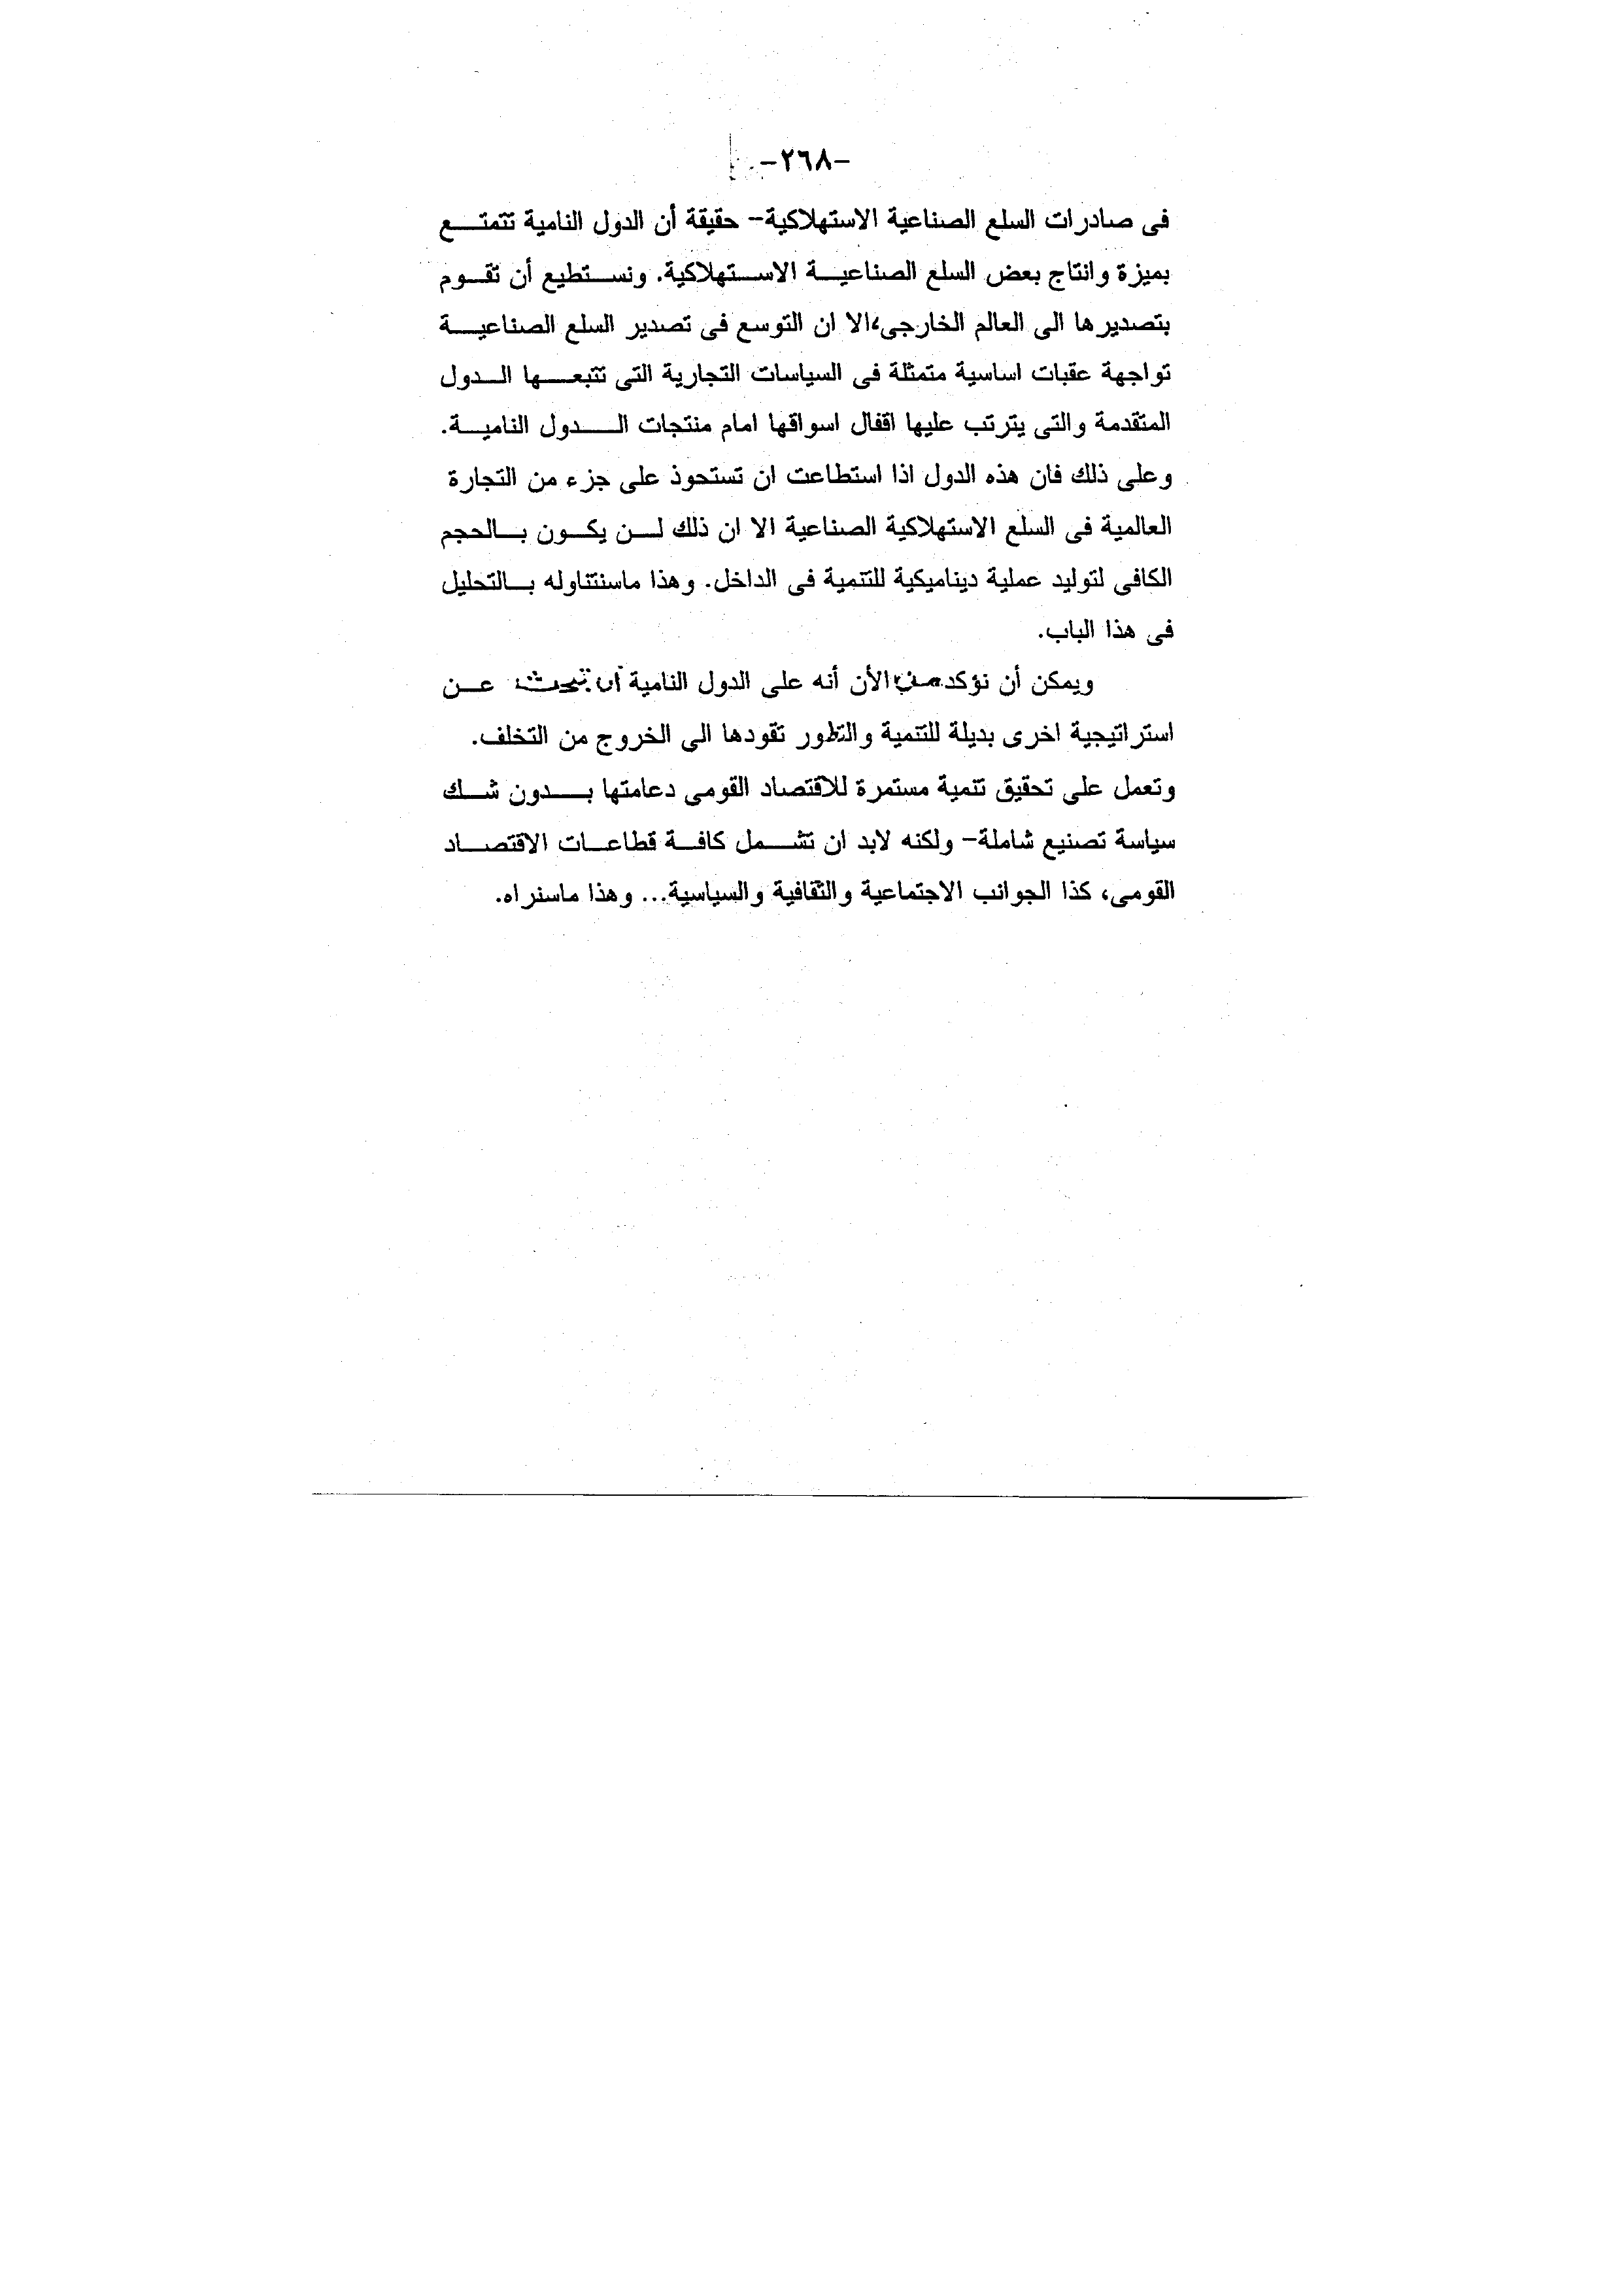 -٢٦٨-
فى صادرات السلع الصناعية الاستهلاكية- حقيقة أن الدول النامية تتمتع
بميزة وانتاج بعض السلع الصناعية الاستهلاكية. ونستطيع أن تقوم
بتصديرها الى العالم الخارجى،الا ان التوسع فى تصدير السلع الصناعية
تواجهة عقبات اساسية متمثلة فى السياسات التجارية التى تتبعها الدول
المتقدمة والتى يترتب عليها اقفال اسواقها امام منتجات الدول النامية.
وعلى ذلك فان هذه الدول اذا استطاعت ان تستحوذ على جزء من التجارة
العالمية فى السلع الاستهلاكية الصناعية الا ان ذلك لن يكون بالحجم
الكافى لتوليد عملية ديناميكية للتنمية فى الداخل. وهذا ماسنتناوله بالتحليل
فى هذا الباب.
ويمكن أن نؤكد من الأن أنه على الدول النامية أن تبحث عن
استراتيجية اخرى بديلة للتنمية والتطور تقودها الى الخروج من التخلف.
وتعمل على تحقيق تنمية مستمرة للاقتصاد القومى دعامتها بدون شك
سياسة تصنيع شاملة- ولكنه لابد ان تشمل كافة قطاعات الاقتصاد
القومى، كذا الجوانب الاجتماعية والثقافية والسياسية... وهذا ماسنراه.